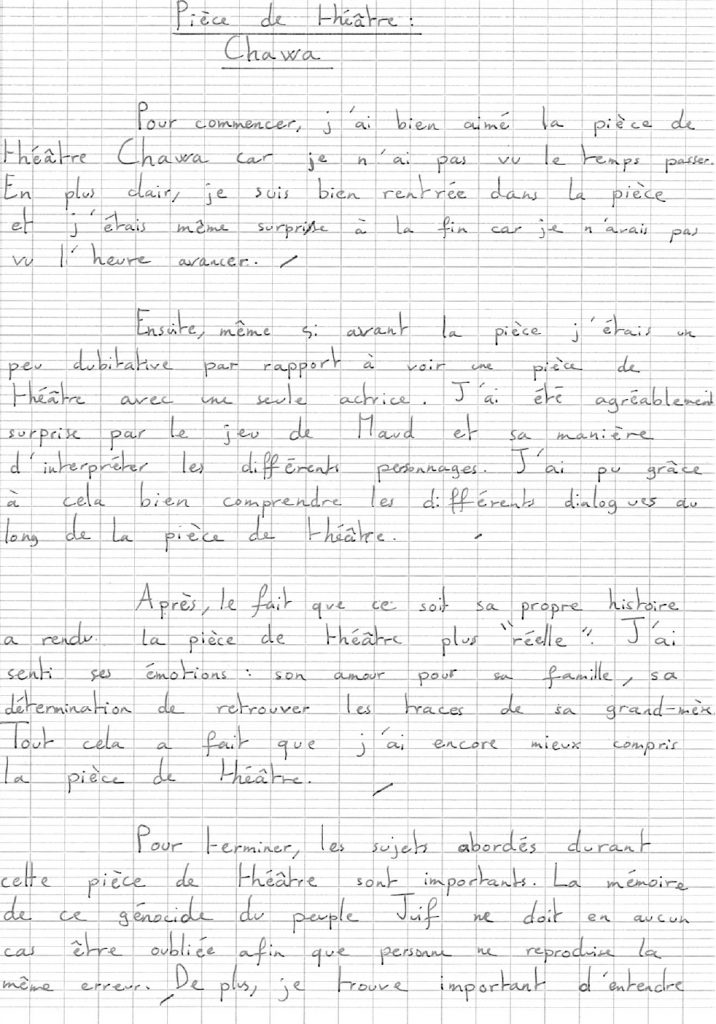 Pièce de théâtre :
Chawa
Pour commencer, j'ai bien aimé la pièce de
théâtre Chawa car je n'ai pas vu le temps passer.
En plus clair, je suis bien rentrée dans la pièce
et j'étais même surprise à la fin car je n'avais pas
vu l'heure avancer.
Ensuite, même si avant la pièce j'étais un
peu dubitative par rapport à voir une pièce de
théâtre avec une seule actrice. J'ai été agréablement
surprise par le jeu de Maud et sa manière
d'interpréter les différents personnages. J'ai pu grâce
à cela bien comprendre les différents dialogues au
long de la pièce de théâtre.
Après, le fait que ce soit sa propre histoire
a rendu la pièce de théâtre plus "réelle". J'ai
senti ses émotions : son amour pour sa famille, sa
détermination de retrouver les traces de sa grand-mèr
Tout cela a fait que j'ai encore mieux compris
la pièce de théâtre.
Pour terminer, les sujets abordés durant
cette pièce de théâtre sont importants. La mémoire
de ce génocide du peuple Juif ne doit en aucun
cas être oubliée afin que personne ne reproduise la
même erreur. De plus, je trouve important d'entendre